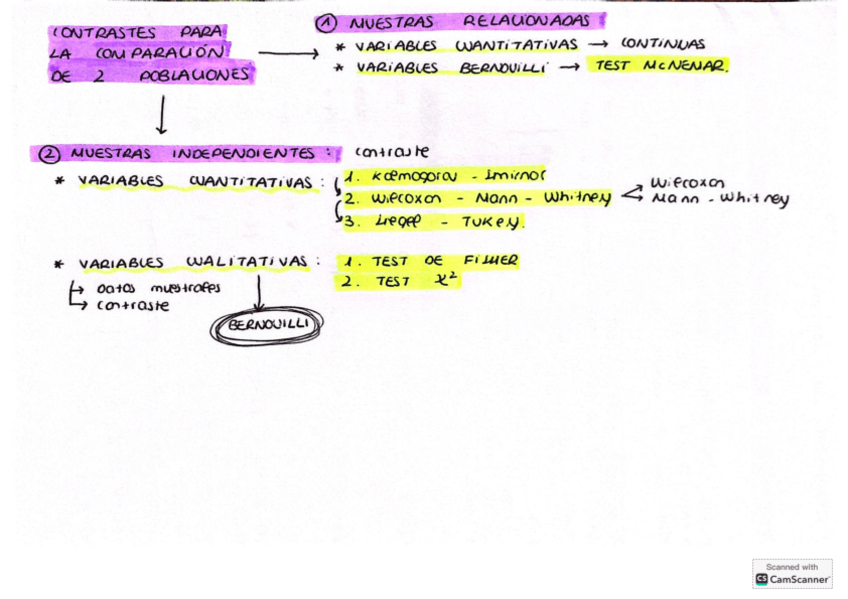 CONTRASTES PARA
LA COMPARACIÓN
DE 2 POBLACIONES
① MUESTRAS RELACIONADAS
* VARIABLES CUANTITATIVAS → CONTINUAS
* VARIABLES BERNOUILLI → TEST McNEMAR.
② MUESTRAS INDEPENDIENTES: contraste
* VARIABLES CUANTITATIVAS: 1. Kolmogorov - Smirnof
2. Wilcoxon - Mann - Whitney
Wilcoxon
Mann - Whitney
3. Siegel - Tukey.
* VARIABLES CUALITATIVAS: 1. TEST DE FISHER
2. TEST χ²
↳ Datos muestrales
↳ contraste
BERNOUILLI
Scanned with
CS CamScanner